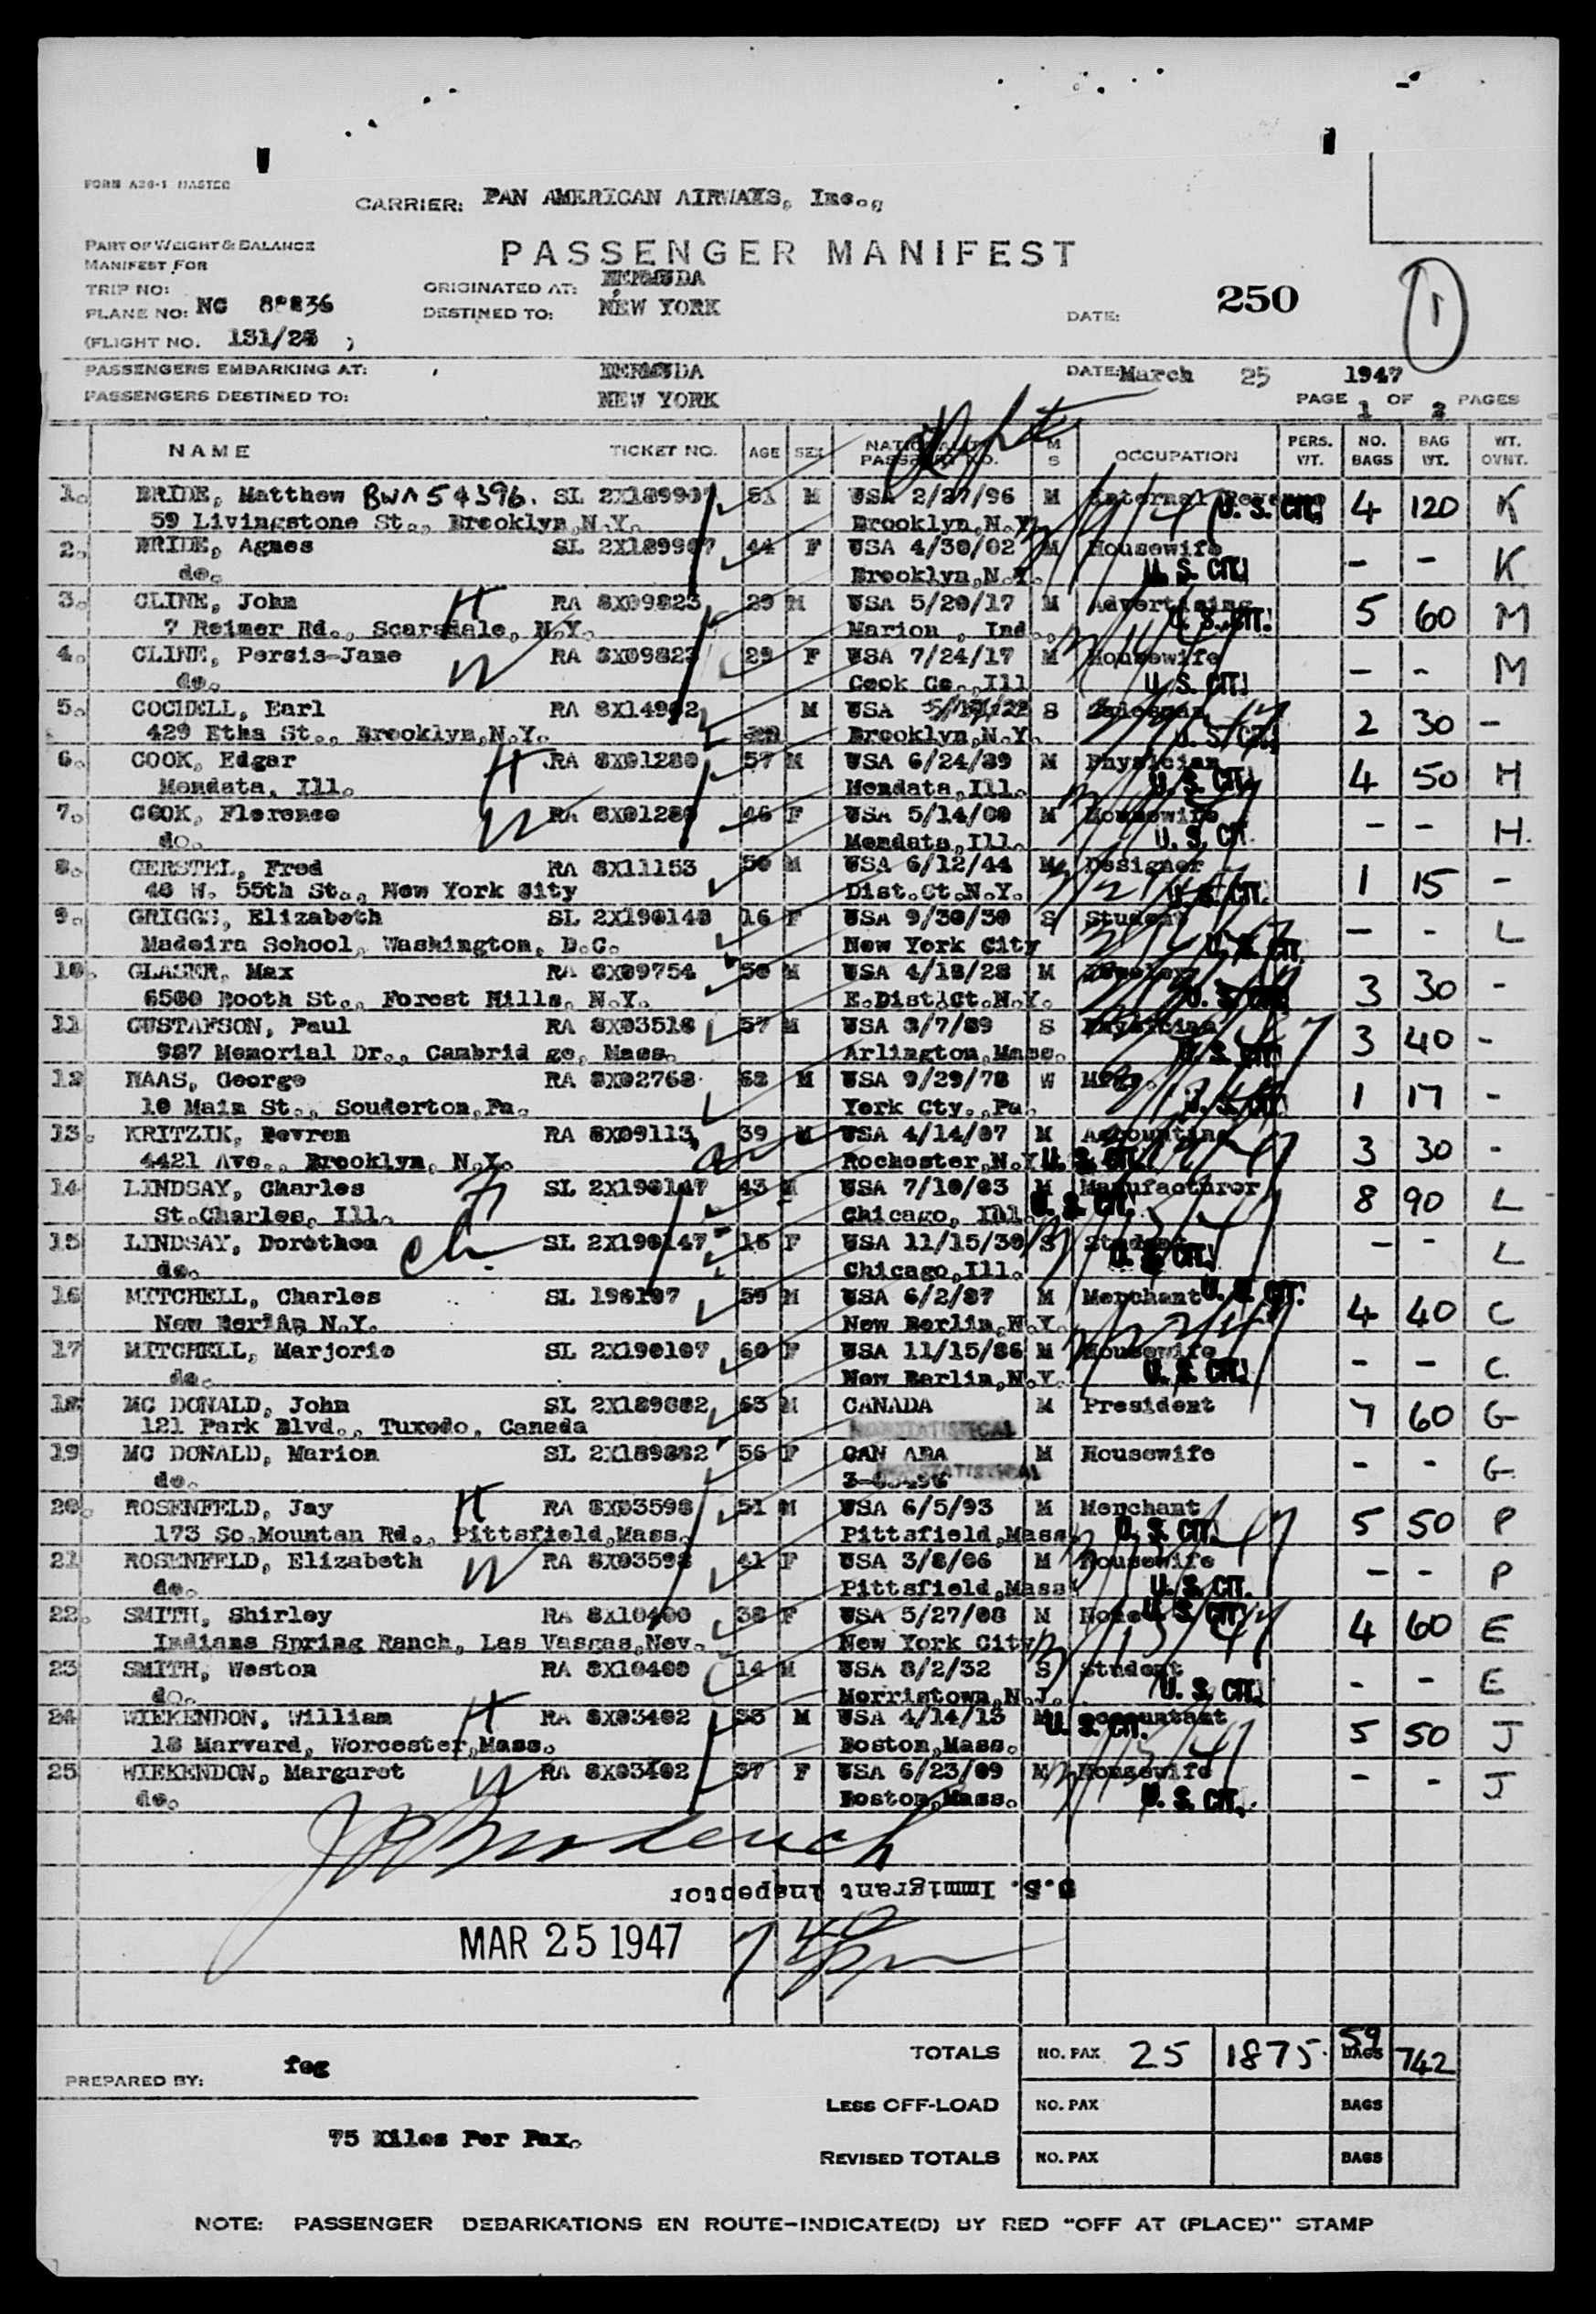 FORM A20-1 MASTER
CARRIER: PAN AMERICAN AIRWAYS, Inc.,
PART OF WEIGHT & BALANCE
MANIFEST FOR
PASSENGER MANIFEST
TRIP NO:
ORIGINATED AT: BERMUDA
PLANE NO: NC 88836
DESTINED TO: NEW YORK
DATE: 250
1
(FLIGHT NO. 131/25 )
PASSENGERS EMBARKING AT: BERMUDA DATE: March 25 1947
PASSENGERS DESTINED TO: NEW YORK PAGE 1 OF 2 PAGES
NAME TICKET NO. AGE SEX NATIONALITY PASSPORT NO. M S OCCUPATION PERS. WT. NO. BAGS BAG WT. WT. OVNT.
1. BRIDE, Matthew BWA 54396. SL 2X189907 51 M USA 2/27/96 M Internal Revenue U. S. CIT. 4 120 K
59 Livingstone St., Brooklyn,N.Y. Brooklyn,N.Y.
2. BRIDE, Agnes SL 2X189907 44 F USA 4/30/02 M Housewife - - K
do. Brooklyn,N.Y. U. S. CIT.
3. CLINE, John H RA 8X09823 29 M USA 5/20/17 M Advertising U. S. CIT. 5 60 M
7 Reimer Rd., Scarsdale, N.Y. Marion , Ind.,
4. CLINE, Persis-Jane W RA 8X09823 29 F USA 7/24/17 M Housewife - - M
do. Cook Co.,Ill U. S. CIT.
5. COCHELL, Earl RA 8X14982 M USA S Salesman 2 30 -
429 Etna St., Brooklyn,N.Y. Brooklyn,N.Y. U. S. CIT.
6. COOK, Edgar H RA 8X01280 57 M USA 6/24/89 M Physician 4 50 H
Mendata, Ill. Mendata,Ill. U. S. CIT.
7. COOK, Florence W RA 8X01280 46 F USA 5/14/00 M Housewife - - H.
do. Mendata,Ill. U. S. CIT.
8. GERSTEL, Fred RA 8X11153 50 M USA 6/12/44 M Designer 1 15 -
40 W. 55th St., New York City Dist.Ct.N.Y. U. S. CIT.
9. GRIGGS, Elizabeth SL 2X190148 16 F USA 9/30/30 S Student - - L
Madeira School, Washington, D.C. New York City U. S. CIT.
10. GLASER, Max RA 8X09754 50 M USA 4/18/28 M 3 30 -
6500 Booth St., Forest Hills, N.Y. E.Dist.Ct.N.Y. U. S. CIT.
11 GUSTAFSON, Paul RA 8X03518 57 M USA 8/7/89 S Physician 3 40 -
987 Memorial Dr., Cambrid ge, Mass. Arlington,Mass. U. S. CIT.
12 HAAS, George RA 8X02768 68 M USA 9/29/78 W 1 17 -
10 Main St., Souderton,Pa. York Cty.,Pa. U. S. CIT.
13. KRITZIK, Devron RA 8X09113 39 M USA 4/14/07 M Accounting 3 30 -
4421 Ave., Brooklyn, N.Y. Rochester,N.Y U. S. CIT.
14 LINDSAY, Charles SL 2X190147 43 M USA 7/10/03 M Manufacturer 8 90 L
St.Charles, Ill. Chicago, Ill. U. S. CIT.
15 LINDSAY, Dorothea ch. SL 2X190147 16 F USA 11/15/30 S Student - - L
do. Chicago,Ill. U. S. CIT.
16 MITCHELL, Charles SL 190107 59 M USA 6/2/87 M Merchant U. S. CIT. 4 40 C
New Berlin N.Y. New Berlin,N.Y.
17 MITCHELL, Marjorie SL 2X190107 60 F USA 11/15/86 M Housewife - - C.
do. New Berlin,N.Y. U. S. CIT.
18 MC DONALD, John SL 2X189882 63 M CANADA M President 7 60 G
121 Park Blvd., Tuxedo, Canada NONSTATISTICAL
19 MC DONALD, Marion SL 2X189882 56 F CAN ADA M Housewife - - G.
do. NONSTATISTICAL
20. ROSENFELD, Jay H RA 8X03598 51 M USA 6/5/93 M Merchant 5 50 P
173 So.Mountan Rd., Pittsfield,Mass. Pittsfield,Mass. U. S. CIT.
21 ROSENFELD, Elizabeth W RA 8X03598 41 F USA 3/8/06 M Housewife - - P
do. Pittsfield,Mass. U. S. CIT.
22. SMITH, Shirley RA 8X10400 38 F USA 5/27/08 M None U. S. CIT. 4 60 E
Indians Spring Ranch, Las Vascas,Nev. New York City
23 SMITH, Weston RA 8X10400 14 M USA 8/2/32 S Student - - E
do. Morristown,N.J. U. S. CIT.
24 WIEKENDON, William H RA 8X03402 33 M USA 4/14/13 M Accountant 5 50 J
18 Marvard, Worcester,Mass. Boston,Mass. U. S. CIT.
25 WIEKENDON, Margaret W RA 8X03402 37 F USA 6/23/09 M Housewife - - J
do. Boston,Mass. U. S. CIT.
U.S. Immigrant Inspector
MAR 25 1947 7 40 pm
TOTALS NO. PAX 25 1875. 59 BAGS 742
PREPARED BY: feg
LESS OFF-LOAD NO. PAX BAGS
75 Kilos Per Pax.
REVISED TOTALS NO. PAX BAGS
NOTE: PASSENGER DEBARKATIONS EN ROUTE-INDICATE(D) BY RED "OFF AT (PLACE)" STAMP